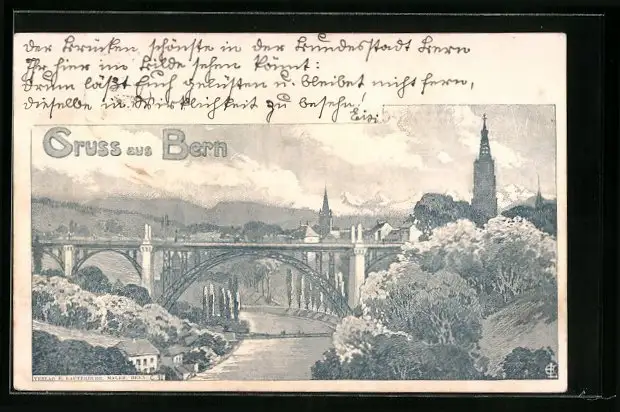 Der Brücken, schönste in der Bundesstadt Bern
Ihr hier im Bilde sehen könnt:
Drum läßt Euch gelüsten u. bleibet nicht fern,
dieselbe in Wirklichkeit zu besehn
Gruss aus Bern
VERLAG E. LAUTERBURG, MALER, BERN.